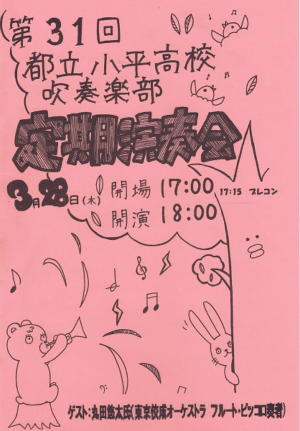 第31回
都立小平高校
吹奏楽部
定期演奏会
3月28日(木)
開場17:00
17:15 プレコン
開演18:00
ゲスト:丸田悠太氏(東京佼成オーケストラ フルート・ピッコロ奏者)